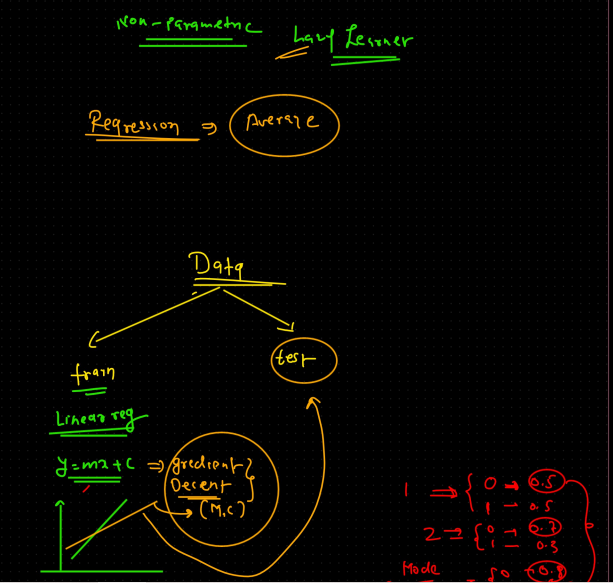 Non-Parametric
Lazy Learner
Regression ⇒ Average
Data
train
test
Linear reg
y=mx+c ⇒ gredient
Decent
→ (M,c)
1 ⇒ { 0 → 0.5
1 — 0.5
2 ⇒ { 0 → 0.7
1 — 0.3
Mode